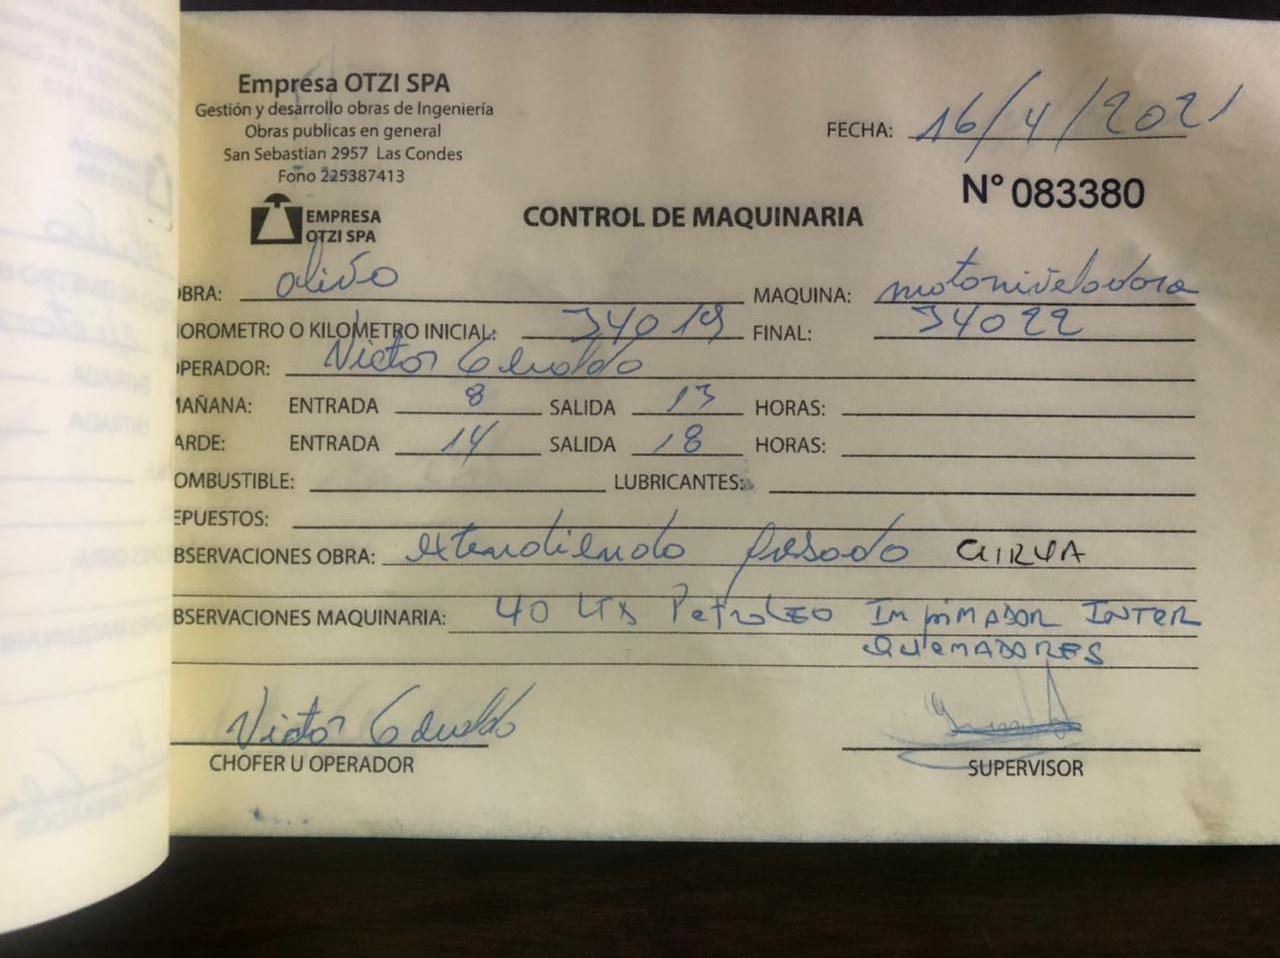 Empresa OTZI SPA
Gestión y desarrollo obras de Ingeniería
Obras publicas en general
San Sebastian 2957 Las Condes
Fono 225387413
FECHA: 16/4/2021
N° 083380
EMPRESA
OTZI SPA
CONTROL DE MAQUINARIA
OBRA: MAQUINA: motoniveladora
HOROMETRO O KILOMETRO INICIAL: 34019 FINAL: 34022
OPERADOR: Victor
MAÑANA: ENTRADA 8 SALIDA 13 HORAS:
TARDE: ENTRADA 14 SALIDA 18 HORAS:
COMBUSTIBLE: LUBRICANTES:
REPUESTOS:
OBSERVACIONES OBRA: extendiendo
OBSERVACIONES MAQUINARIA: 40 Lts Petroleo IMpiMADOR INTER
QUEMADORES
Victor
CHOFER U OPERADOR
SUPERVISOR